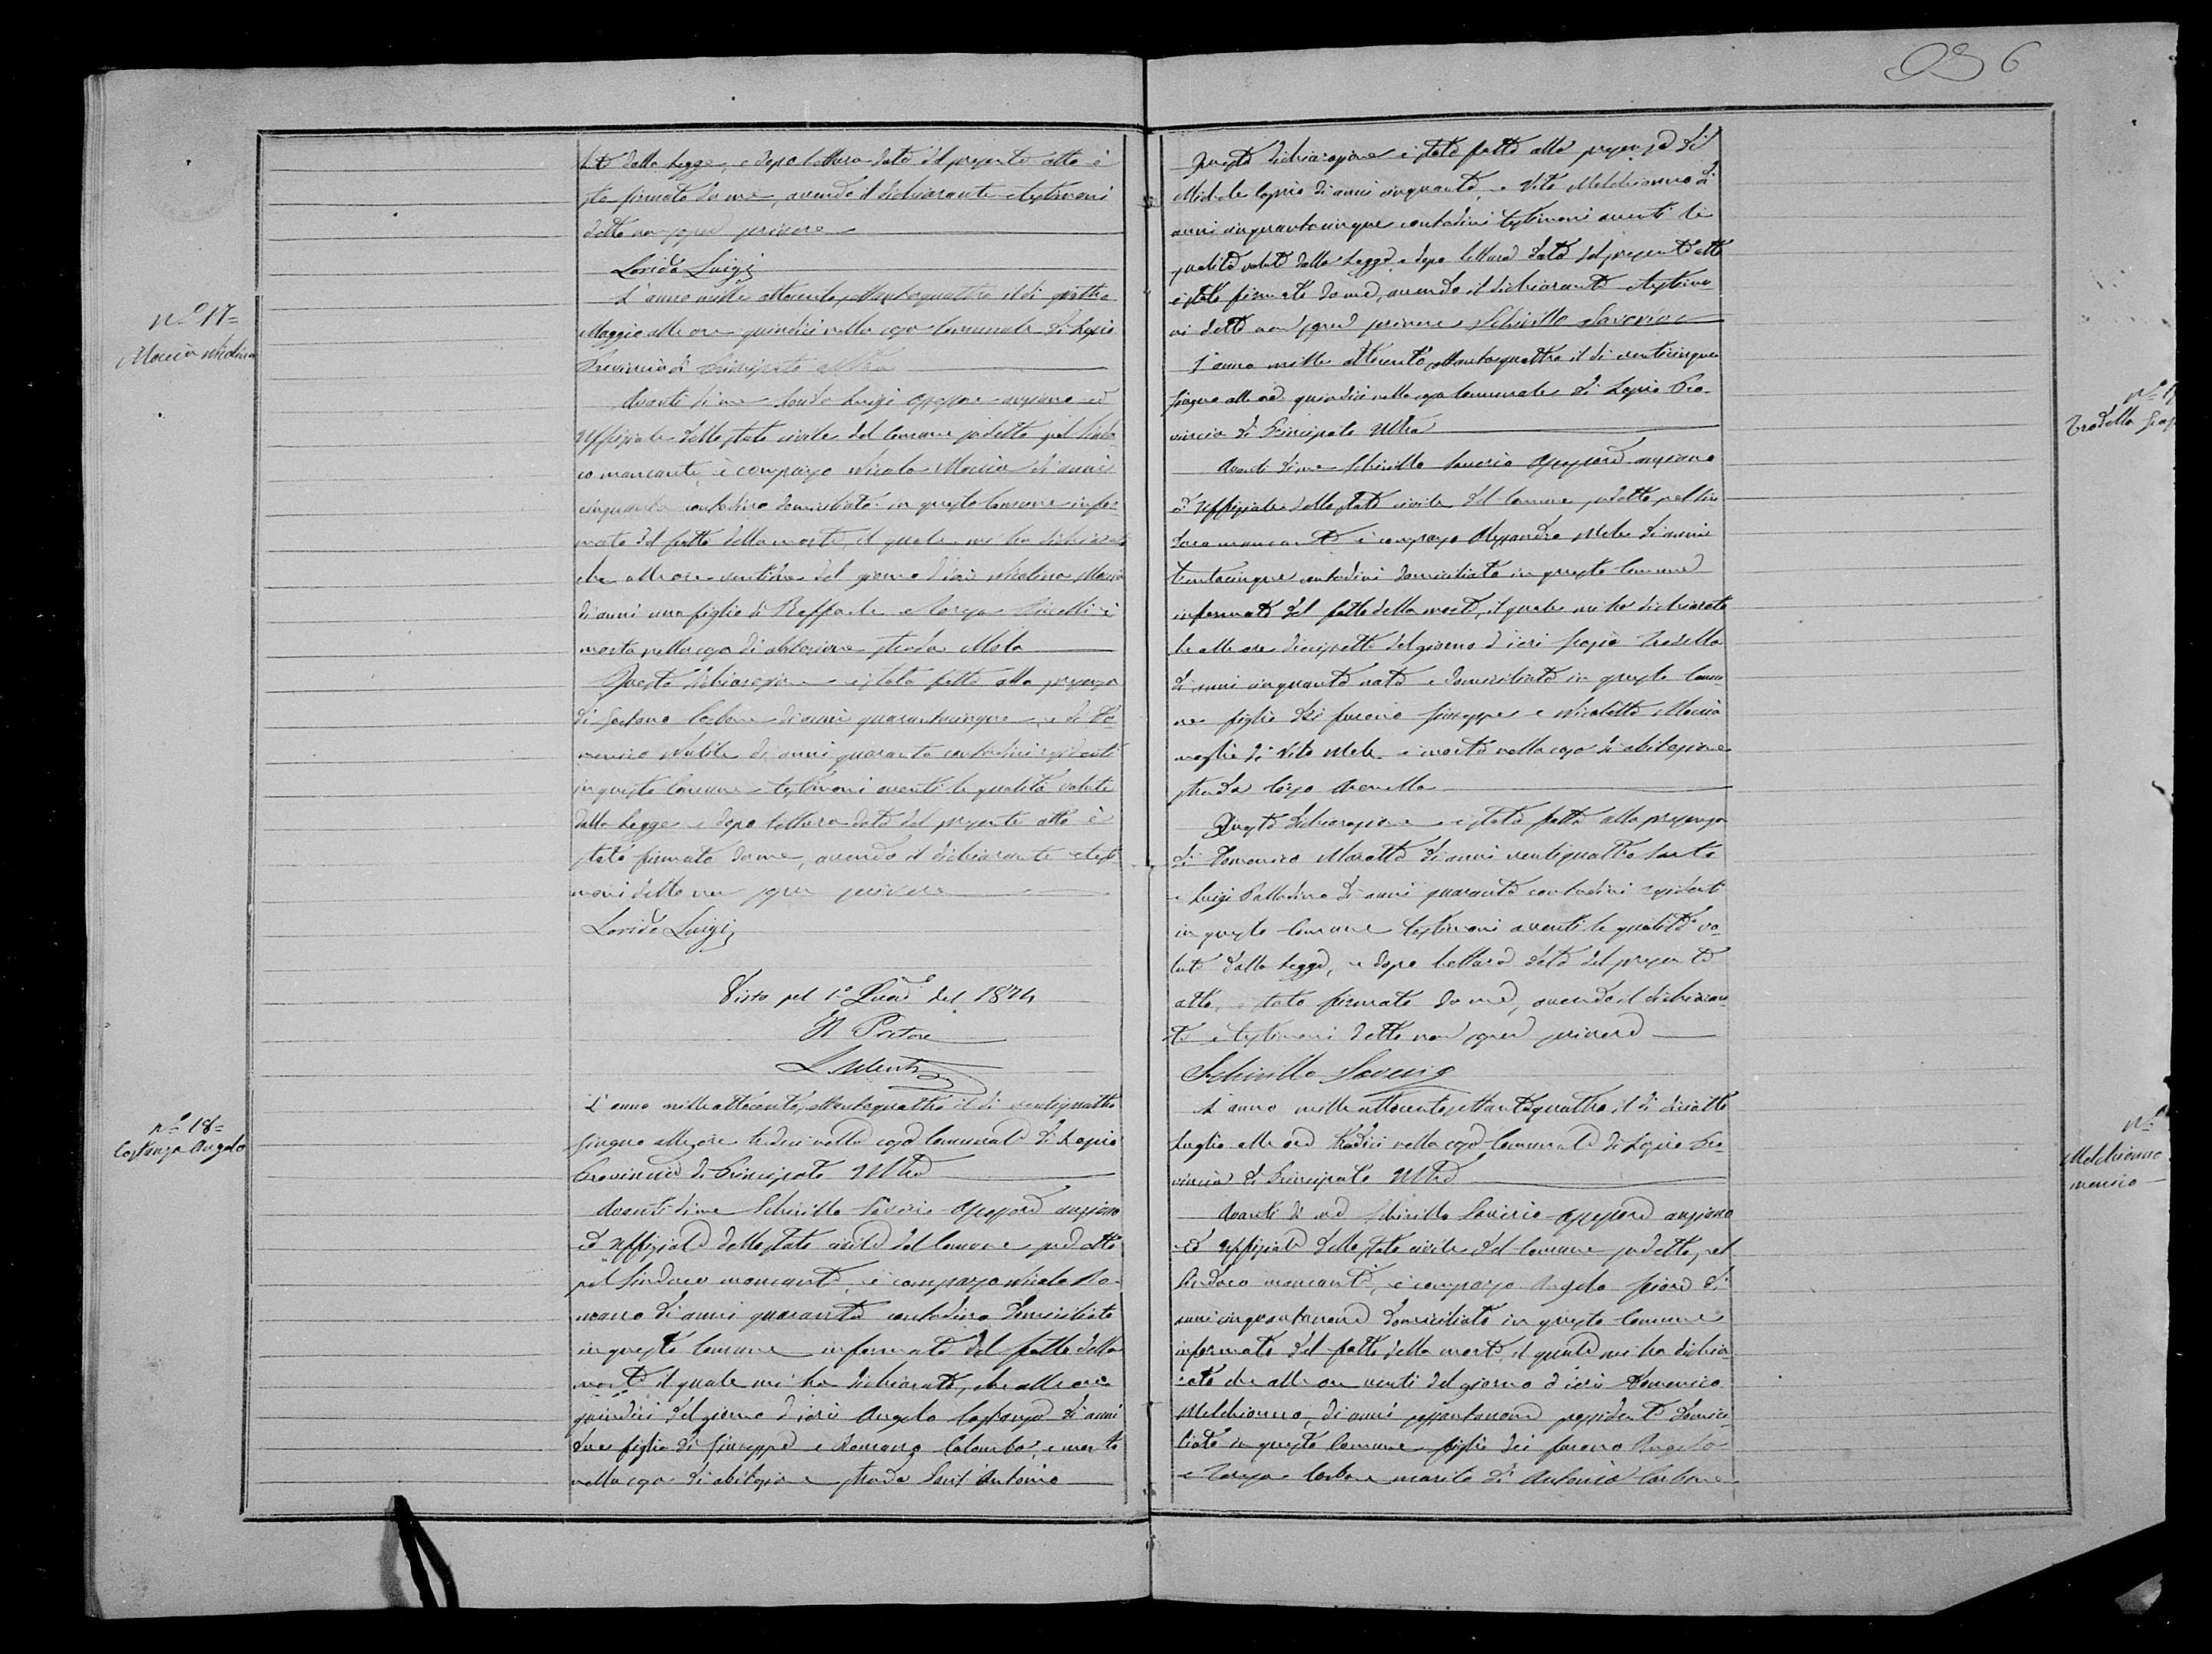 N.° 17=
Maccia Nicolina
luta dalla legge, e dopo lettura data del presente atto è
sto firmato da me, avendo il dichiarante e testimoni
detto non saper scrivere
Lorido Luigi
L'anno mille ottocento settantaquattro il di quattro
Maggio alle ore quindici nella casa Comunale di Lapio
Provincia di Principato Ultra
Avanti di me Luigi Assessore anziano ed
Uffiziale dello stato civile del Comune sudetto pel Sinda-
co mancante, è comparso Nicola Maccia di anni
cinquanta contadino domiciliato in questo Comune infor-
mato del fatto della morte, il quale mi ha dichiarato
che alle ore ventidue del giorno d'ieri Nicolina Maccia
di anni uno figlia di Raffaele e Teresa è
morta nella casa di abitazione strada Mola
Questa dichiarazione è stata fatta alla presenza
di Gaetano Carbone di anni quarantacinque, e di Do-
menico di anni quaranta contadini residenti
in questo Comune testimoni aventi le qualità volute
dalla Legge e dopo lettura data del presente atto è
stato firmato da me, avendo il dichiarante e testi-
moni detto non saper scrivere
Lorido Luigi
Visto pel 1.° Quad.e del 1874
Il Pretore
N.° 18=
Costanza Angelo
L'anno mille ottocento settantaquattro il di ventiquattro
Giugno alle ore tredici nella casa Comunale di Lapio
Provincia di Principato Ultra
Avanti di me Schirillo Saverio Assessore anziano
ed Uffiziale dello stato civile del Comune sudetto
pel Sindaco mancante, è comparso Nicola Ro-
mano di anni quaranta contadino domiciliato
in questo Comune informato del fatto della
morte il quale mi ha dichiarato, che alle ore
quindici del giorno d'ieri Angelo Costanza di anni
due figlio di Giuseppe e Romano Colomba, è morto
nella casa di abitazione strada Sant'Antonio
6
Questa dichiarazione è stata fatta alla presenza di
Michele Caprio di anni cinquanta, e Vito Melchionno di
anni cinquantacinque contadini testimoni aventi le
qualità volute dalla Legge e dopo lettura data del presente atto
è stato firmato da me, avendo il dichiarante e testimo-
ni detto non saper scrivere Schirillo Saverio
L'anno mille ottocento settantaquattro il di venticinque
Giugno alle ore quindici nella casa Comunale di Lapio Pro-
vincia di Principato Ultra
Avanti di me Schirillo Saverio Assessore anziano
ed Uffiziale dello stato civile del Comune sudetto pel Sin-
daco mancante è comparso Alessandro Mele di anni
trentacinque contadini domiciliato in questo Comune
informato del fatto della morte, il quale mi ha dichiarato
che alle ore diciasette del giorno d'ieri Trodella
di anni cinquanta nata e domiciliata in questo Comu-
ne figlia dei furono Giuseppe e Nicoletta Maccia
moglie di Vito Mele è morta nella casa di abitazione
strada largo Arenella
Questa dichiarazione è stata fatta alla presenza
di Domenico Marotta di anni ventiquattro Sarto
e Luigi Palladino di anni quaranta contadini residenti
in questo Comune testimoni aventi le qualità vo-
lute dalla Legge, e dopo lettura data del presente
atto, è stato firmato da me, avendo il dichiaran-
te e testimoni detto non saper scrivere
Schirillo Saverio
L'anno mille ottocento settantaquattro, il di diciotto
Luglio alle ore tredici nella casa Comunale di Lapio Pro-
vincia di Principato Ultra
Avanti di me Schirillo Saverio Assessore anziano
ed Uffiziale dello stato civile del Comune sudetto, pel
Sindaco mancante, è comparso Angelo Fiore di
anni cinquantanove domiciliato in questo Comune
informato del fatto della morte, il quale mi ha dichia-
rato che alle ore venti del giorno d'ieri Domenico
Melchionno, di anni sessantanove possidente domici-
liato in questo Comune figlio dei furono Angelo
e Teresa Carbone marito di Antonia Carbone
N.° 19
Trodella
N.°
Melchionno
menico